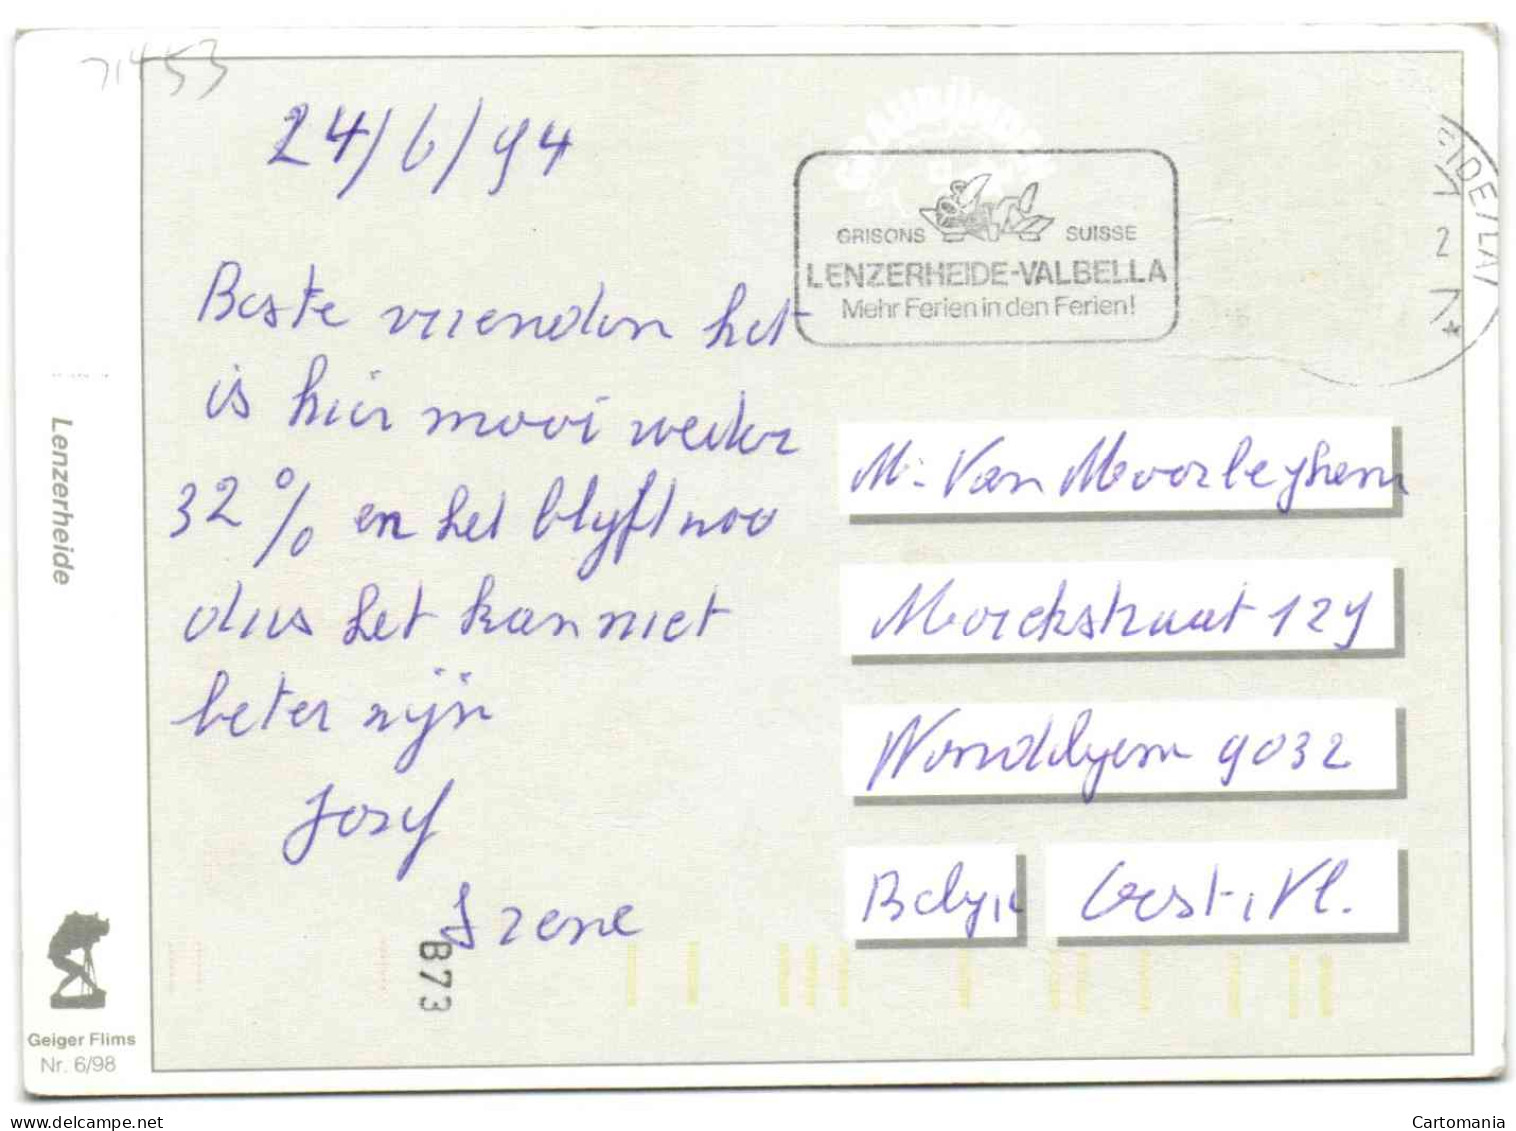 71453
24/6/94
GRAUBÜNDEN
GRISONS SUISSE
LENZERHEIDE-VALBELLA
Mehr Ferien in den Ferien!
EIDE/LAI
Beste vrienden het
is hier mooi weder
32 % en het blyft zoo
dus het kan niet
beter zijn
Josef
Irene
M. Van Moorleghem
Moorekstraat 129
Wondelgem 9032
Belgie Oost. Vl.
B73
Lenzerheide
Geiger Flims
Nr. 6/98
Cartomania
delcampe.net